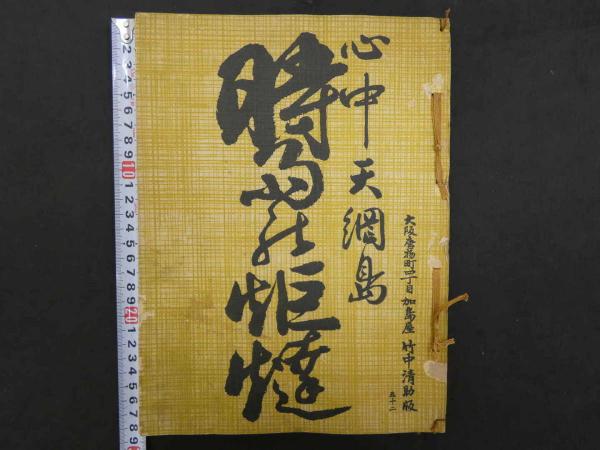 心中天網島
時雨の炬燵
大阪唐物町四丁目 加島屋 竹中清助版
五十二
1 2 3 4 5 6 7 8 9 10 1 2 3 4 5 6 7 8 9 20 1 2 3 4 5 6 7 8 9